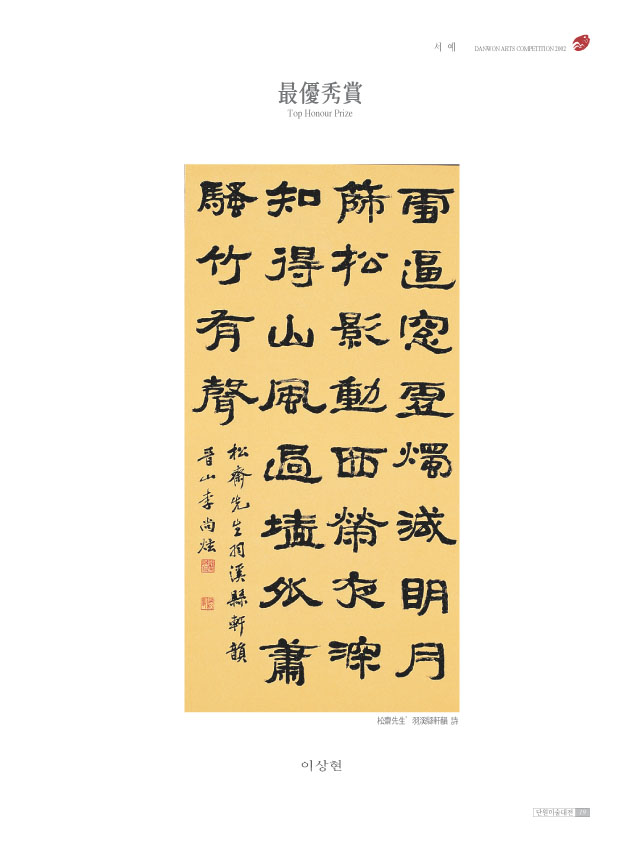 서 예 DANWON ARTS COMPETITION 2002
最優秀賞
Top Honour Prize
雪逼窓虛燭滅明月
篩松影動西榮夜深
知得山風過墻外蕭
騷竹有聲
松齋先生羽溪縣軒韻
晋山李尙炫
松齋先生' 羽溪縣軒韻 詩
이상현
단원미술대전